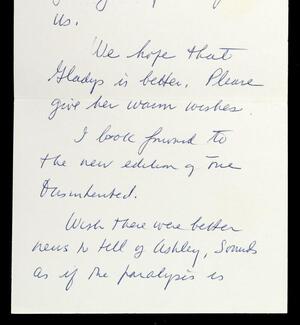 us.
We hope that
Gladys is better. Please
give her warm wishes.
I look forward to
the new edition of The
Disinherited.
Wish there were better
news to tell of Ashley. Sounds
as if the paralysis is